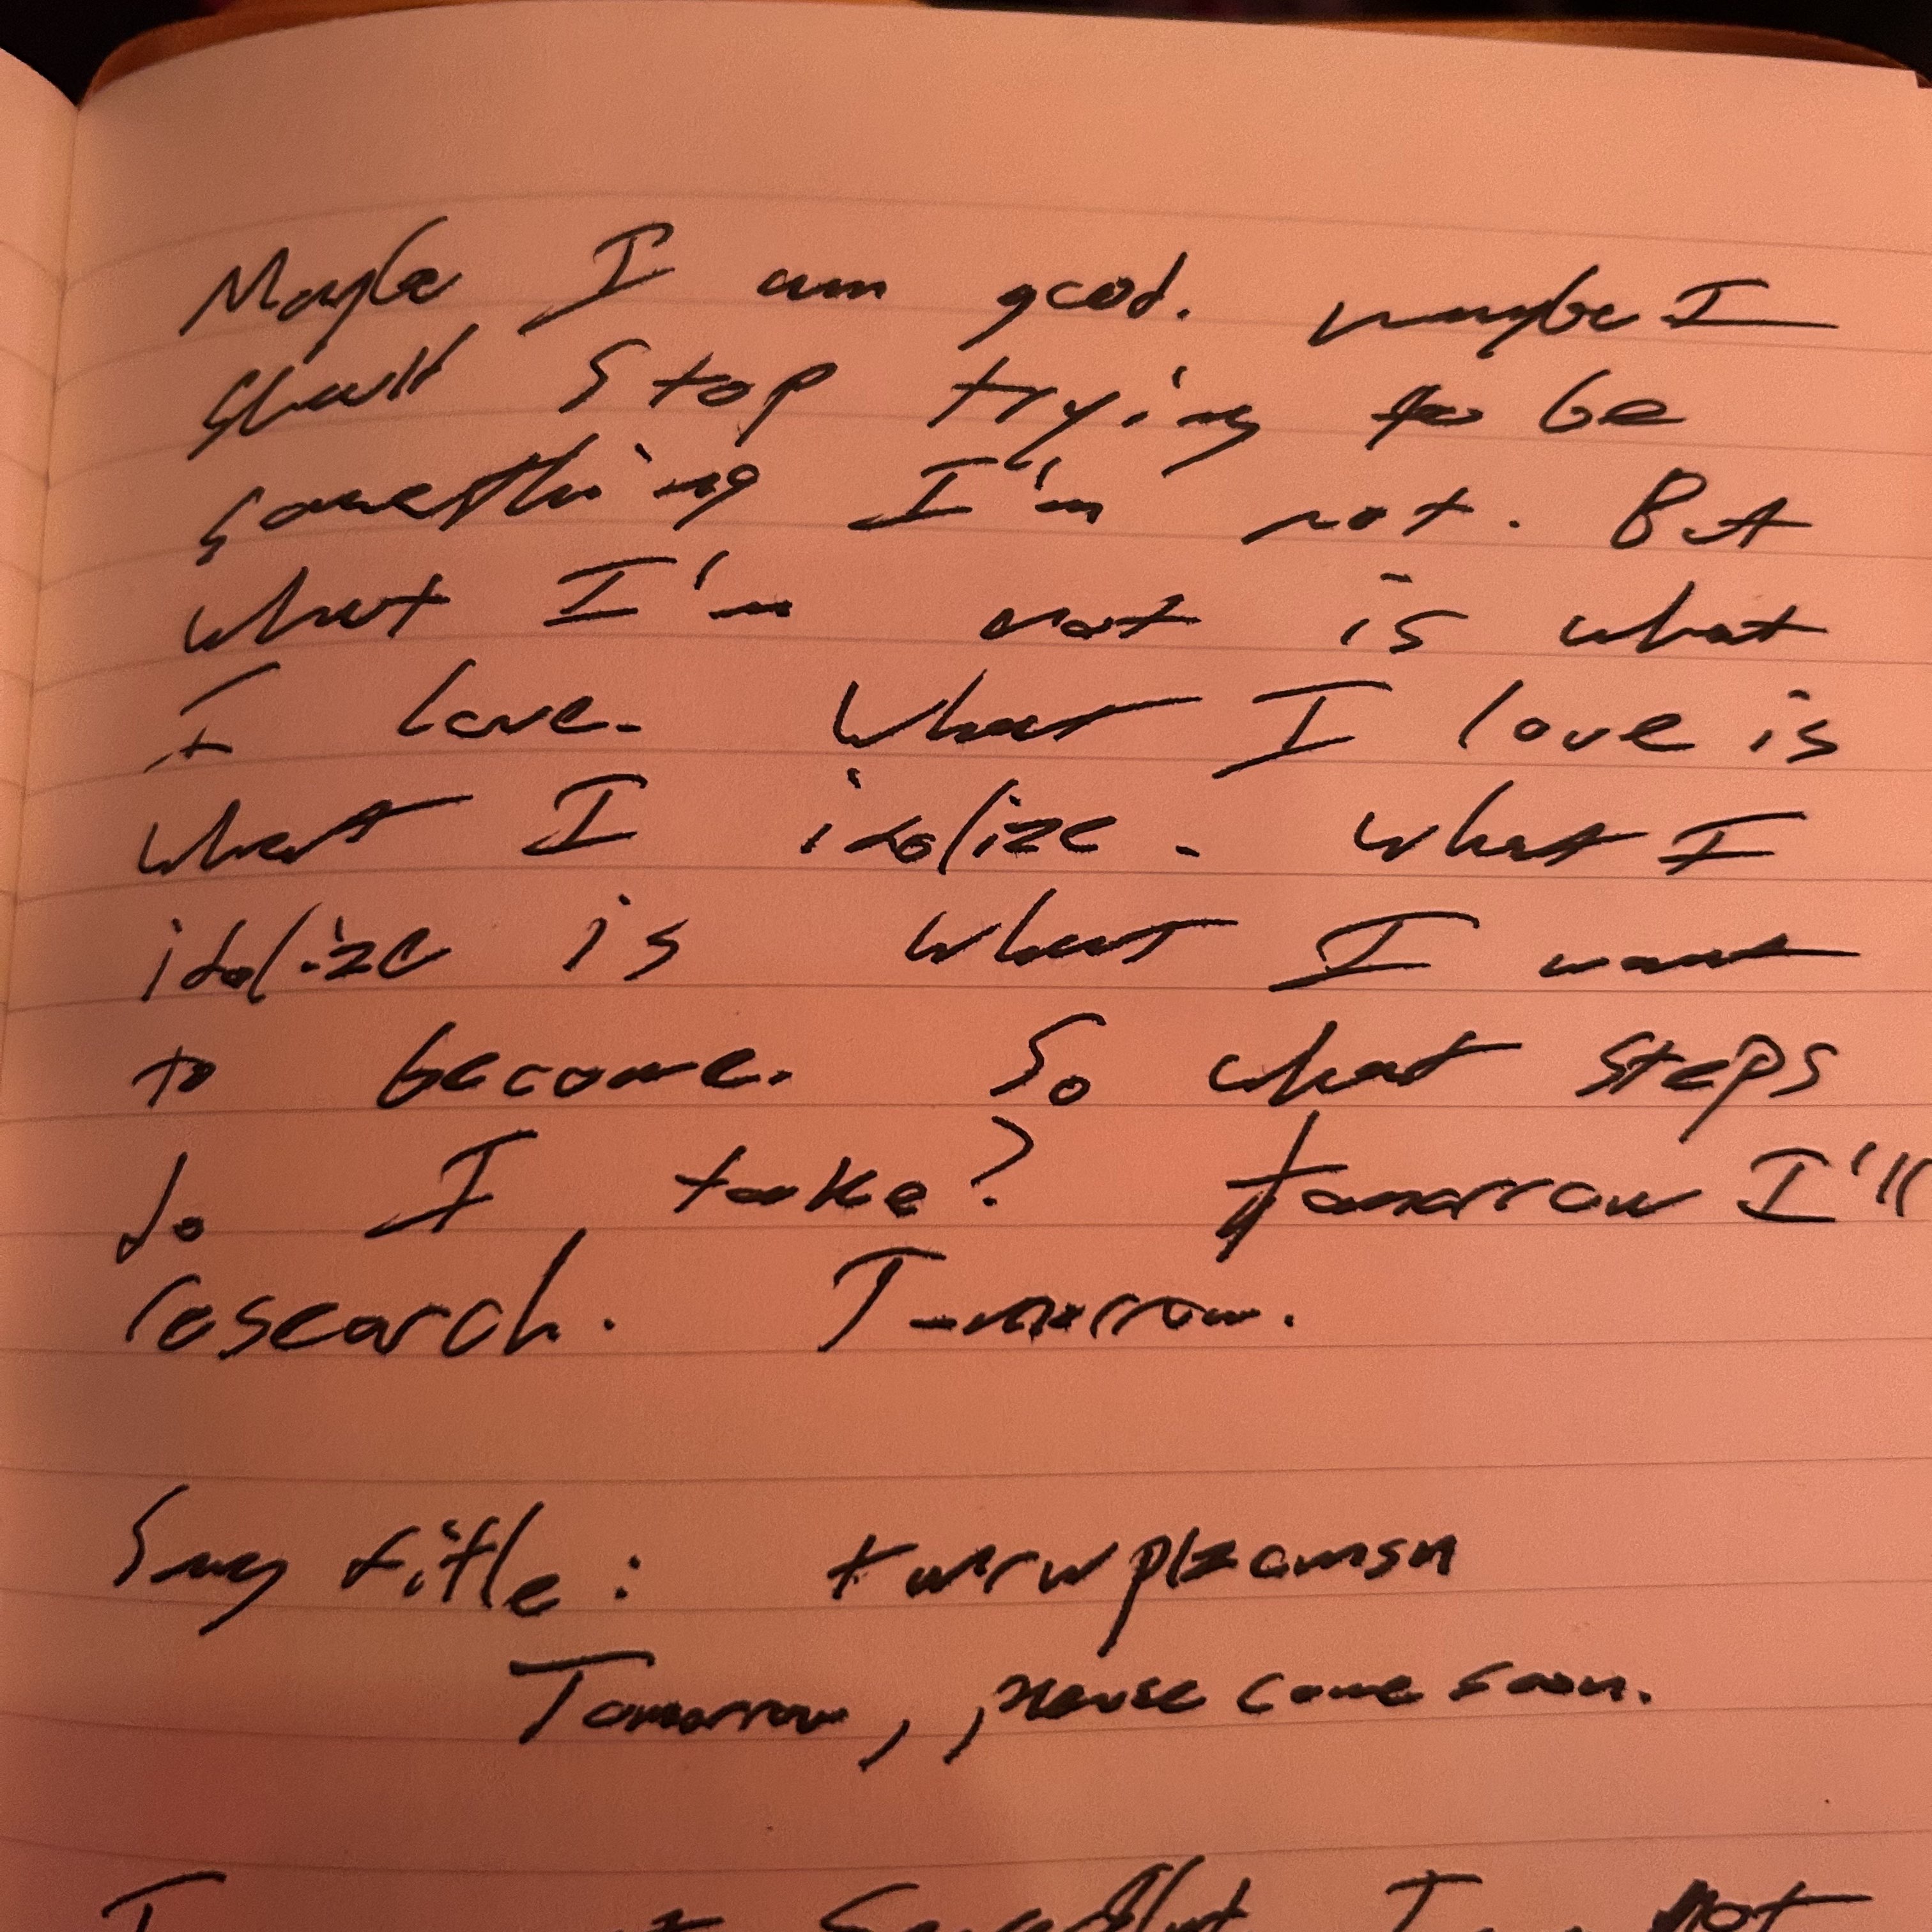 Maybe I am good. maybe I
should stop trying to be
something I'm not. But
what I'm not is what
I love. What I love is
what I idolize. what I
idolize is what I want
to become. So what steps
do I take? tomorrow I'll
research. Tomorrow.
Song title: tmrrwplzcmsn
Tomorrow, please come soon.
I not